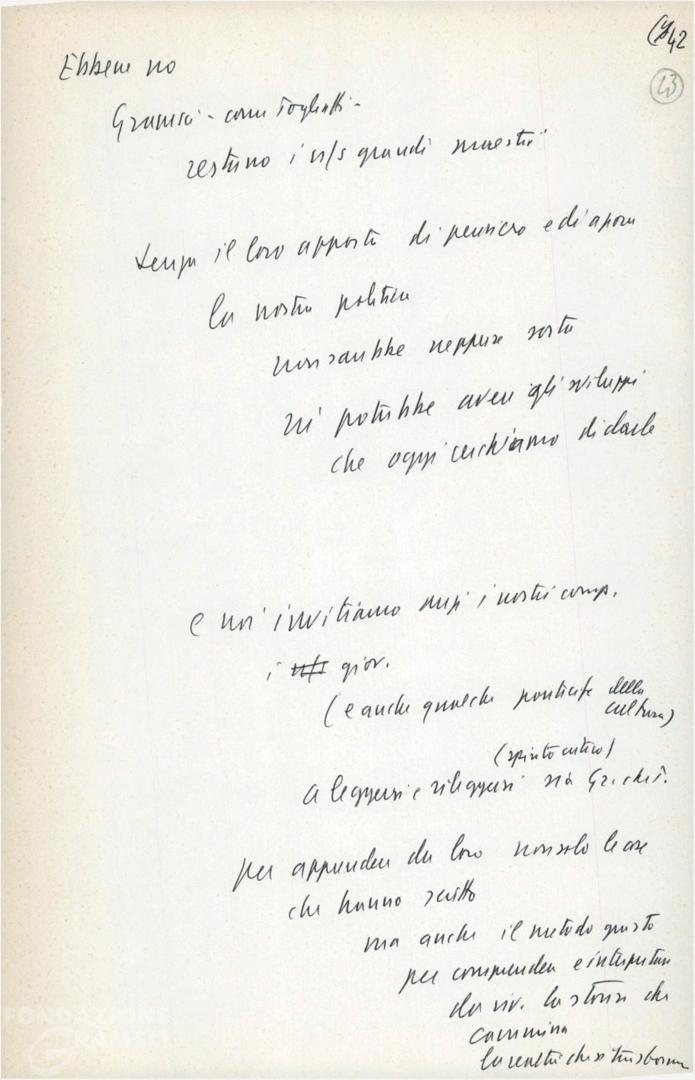 42
23
Ebbene no
Gramsci - come Togliatti -
restano i n/s grandi maestri
senza il loro apporto di pensiero e di azione
la nostra politica
non sarebbe neppure sorta
né potrebbe avere gli sviluppi
che oggi cerchiamo di darle
e noi invitiamo anzi i nostri comp.
i n/s giov.
(e anche qualche pontefice della
cultura)
(spirito critico)
a leggersi e rileggersi sia G. che T.
per apprendere da loro non solo le cose
che hanno scritto
ma anche il metodo giusto
per comprendere e interpretare
la storia che
cammina
la realtà che si trasforma
FONDAZIONE
GRAMSCI